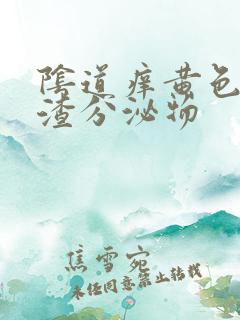 陰道痒黄色
渣分泌物
焦雪宛
未经同意禁止转载